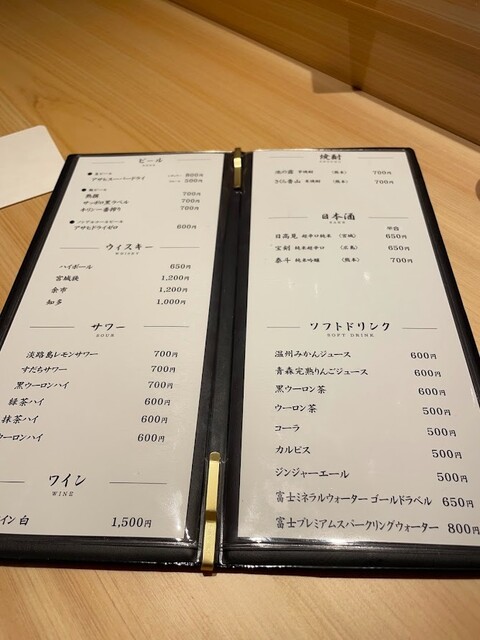 ビール
● 生ビール
アサヒスーパードライ 800円
500円
● 瓶ビール
熟撰 700円
サッポロ黒ラベル 700円
キリン一番搾り 700円
● ノンアルコールビール
アサヒドライゼロ 600円
ウィスキー
WHISKY
ハイボール 650円
宮城峡 1,200円
余市 1,200円
知多 1,000円
サワー
SOUR
淡路島レモンサワー 700円
すだちサワー 700円
黒ウーロンハイ 700円
緑茶ハイ 600円
抹茶ハイ 600円
ウーロンハイ 600円
ワイン
WINE
イン 白 1,500円
焼酎
(熊本) 700円
米焼酎 (熊本) 700円
日本酒
SAKE
半合
日高見 超辛口純米 (宮城) 650円
宝剣 純米超辛口 (広島) 650円
泰斗 純米吟醸 (熊本) 700円
ソフトドリンク
SOFT DRINK
温州みかんジュース 600円
青森完熟りんごジュース 600円
黒ウーロン茶 600円
ウーロン茶 500円
コーラ 500円
カルピス 500円
ジンジャーエール 500円
富士ミネラルウォーター ゴールドラベル 650円
富士プレミアムスパークリングウォーター 800円